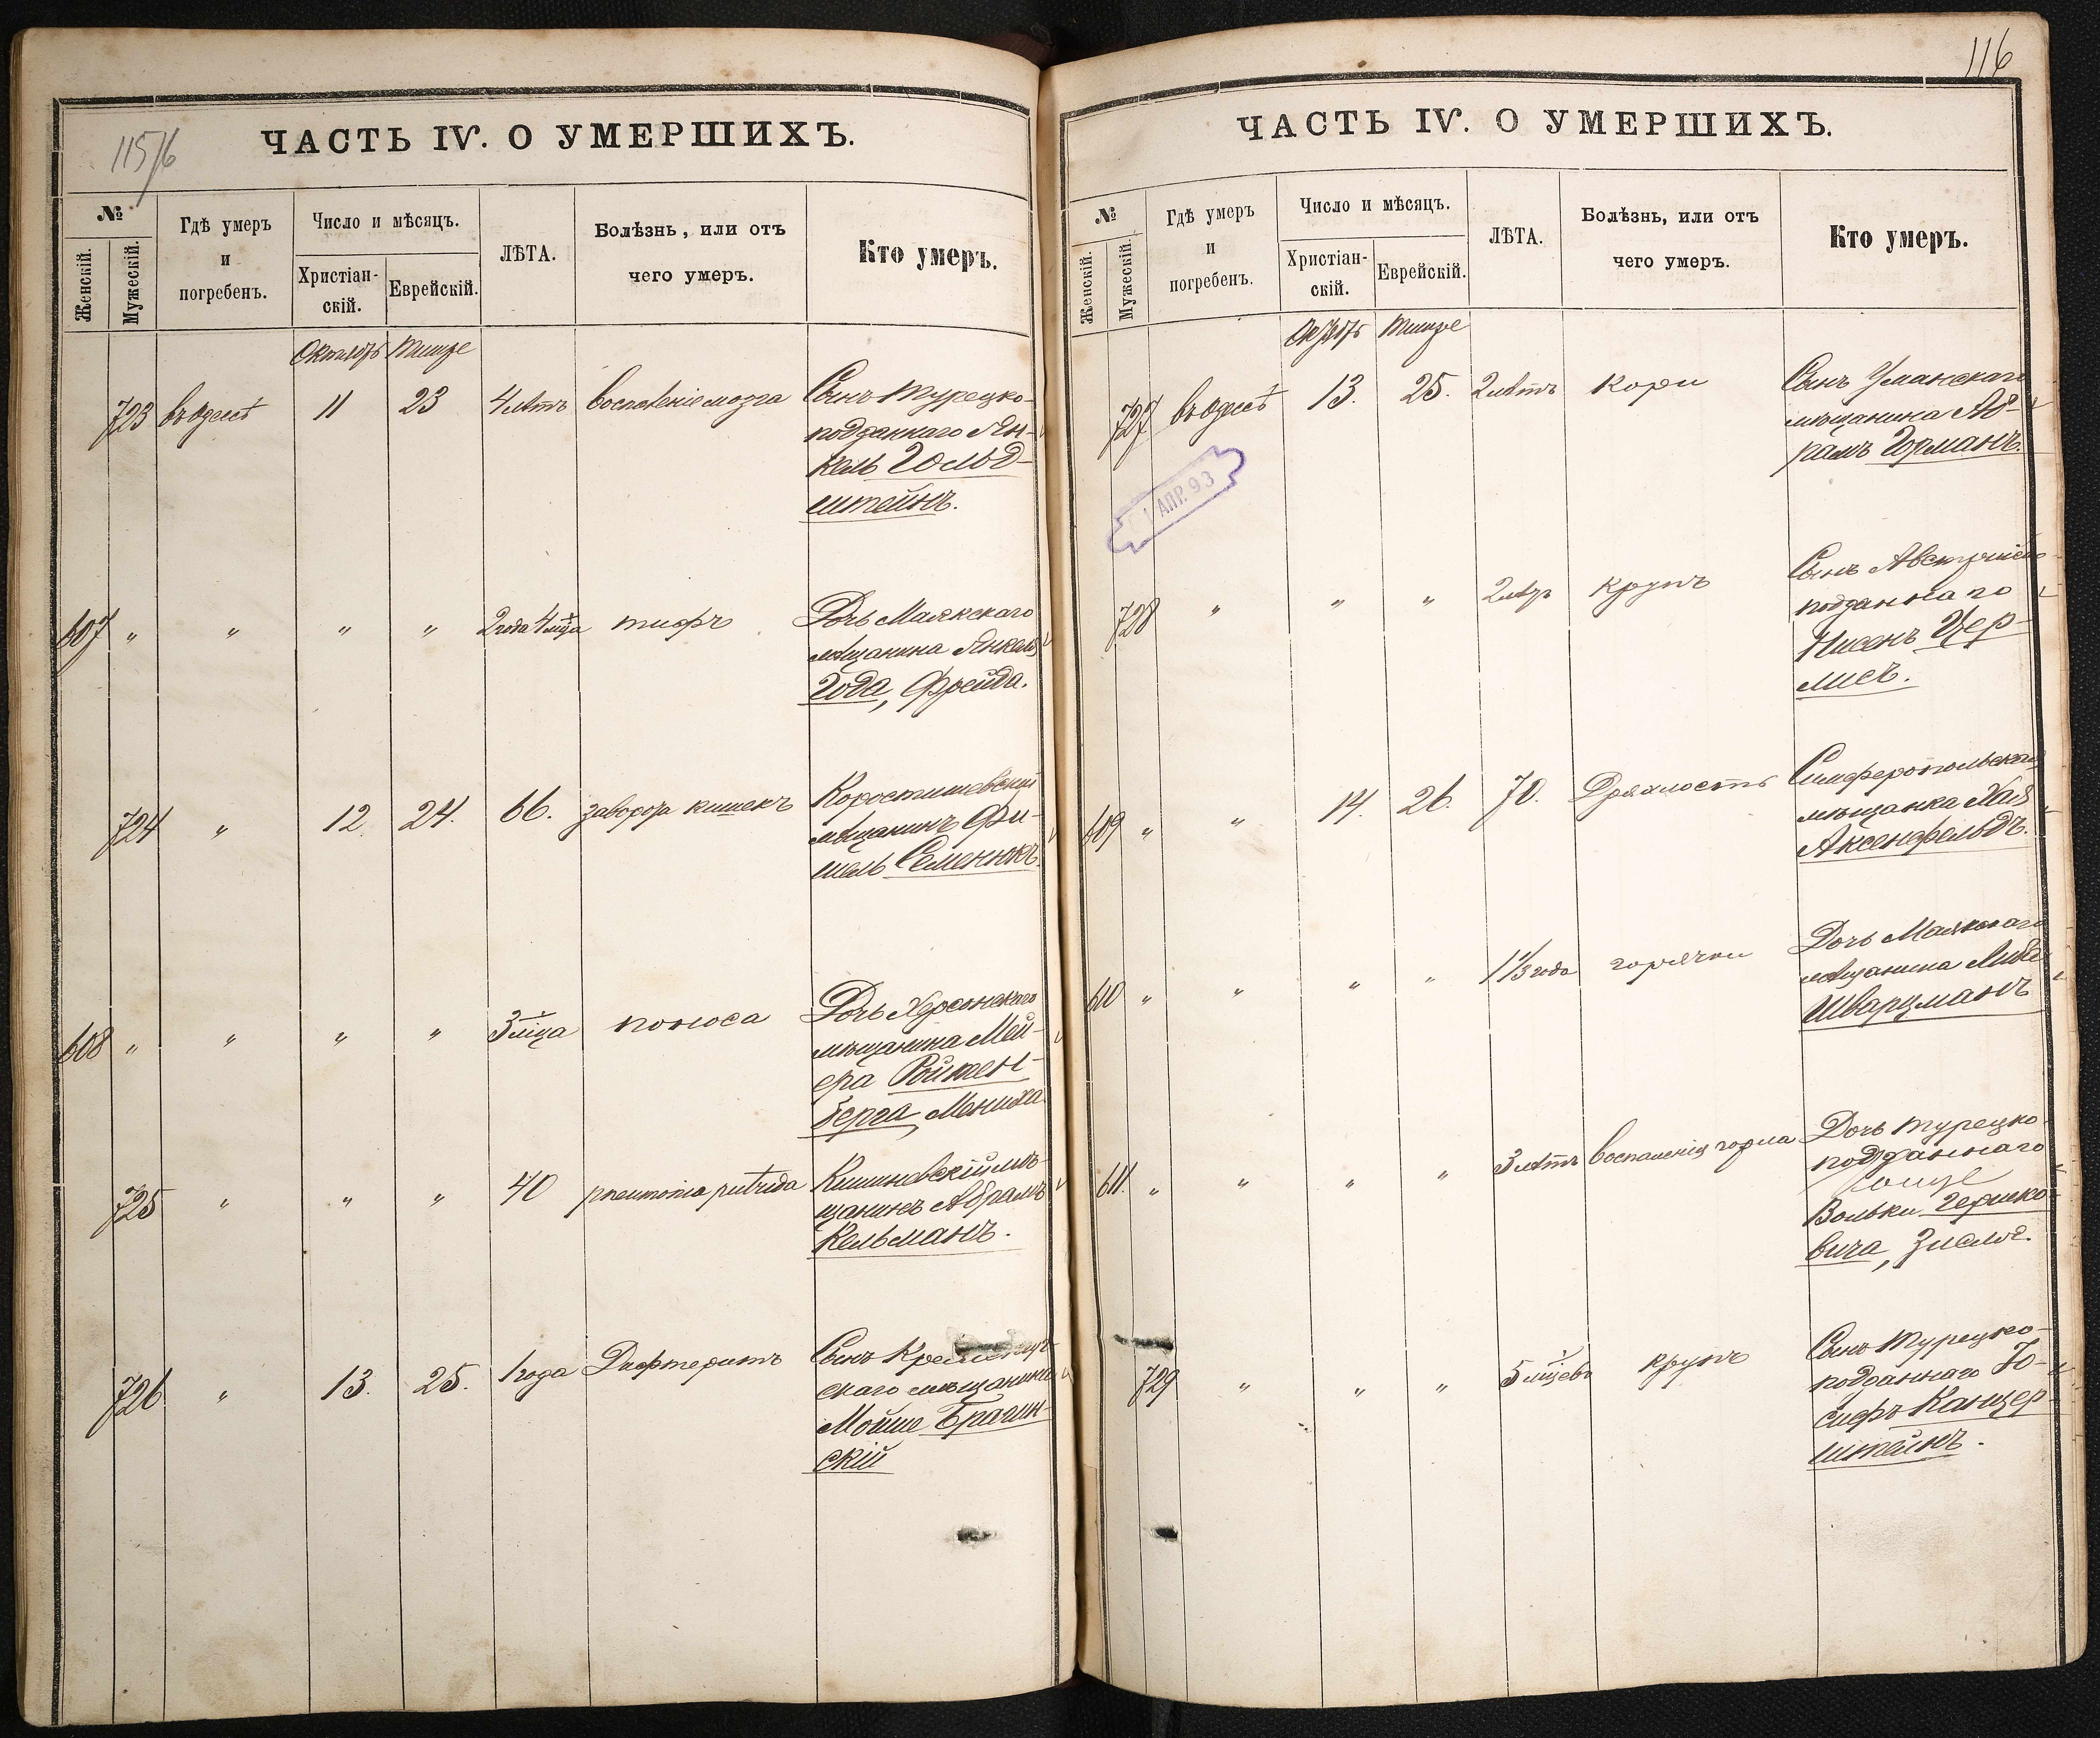 115/6
ЧАСТЬ IV. О УМЕРШИХЪ.
№
Женскій.
Мужескій.
Гдѣ умеръ
и
погребенъ.
Число и мѣсяцъ.
Христіан-
скій.
Еврейскій.
ЛѢТА.
Болѣзнь, или отъ
чего умеръ.
Кто умеръ.
Октябрь Тишре
723 въ Одессѣ 11 23 4 лѣтъ воспаленіе мозга Сынъ Турецко-
подданнаго Ян-
кель Гольд-
штейнъ.
607 " " " " 2 года 4 мѣца тифъ Дочь Маякскаго
мѣщанина Янкеля
Года, Фрейда.
724 " 12. 24. 66. заворота кишекъ Коростишевскій
мѣщанинъ Фи-
шель Семенюкъ.
608 " " " " 3 мѣца поноса Дочь Херсонскаго
мѣщанина Мей-
ера Ройзен-
берга, Мениха
725 " " " 40 pneumonia putrida Кишиневскій мѣ-
щанинъ Абрамъ
Кельманъ.
726 " 13. 25. 1 года Дифтеритъ Сынъ Кременчуг-
скаго мѣщанина
Мойше Брагин-
скій
116
ЧАСТЬ IV. О УМЕРШИХЪ.
№
Женскій.
Мужескій.
Гдѣ умеръ
и
погребенъ.
Число и мѣсяцъ.
Христіан-
скій.
Еврейскій.
ЛѢТА.
Болѣзнь, или отъ
чего умеръ.
Кто умеръ.
Октябрь Тишре
727 въ Одессѣ 13. 25. 2 лѣтъ Кори Сынъ Уманскаго
мѣщанина Аб-
рамъ Горманъ.
1 АПР. 93
728 " " " 2 лѣтъ Крупъ Сынъ Австрійско-
подданнаго
Нисенъ Цер-
лисъ.
609 " " 14. 26. 70. Дряхлость Симферопольская
мѣщанка Хая
Аксенфельдъ.
610 " " " " 1 1/3 года горячки Дочь Маякскаго
мѣщанина Либа
Шварцманъ
611. " " " " 3 лѣтъ воспаленія горла Дочь Турецко-
подданнаго
Вольки Гершко-
вича, Зислѣ.
729 " " " 5 мѣцевъ крупъ Сынъ Турецко-
подданнаго Іо-
сифъ Канцер-
штейнъ.